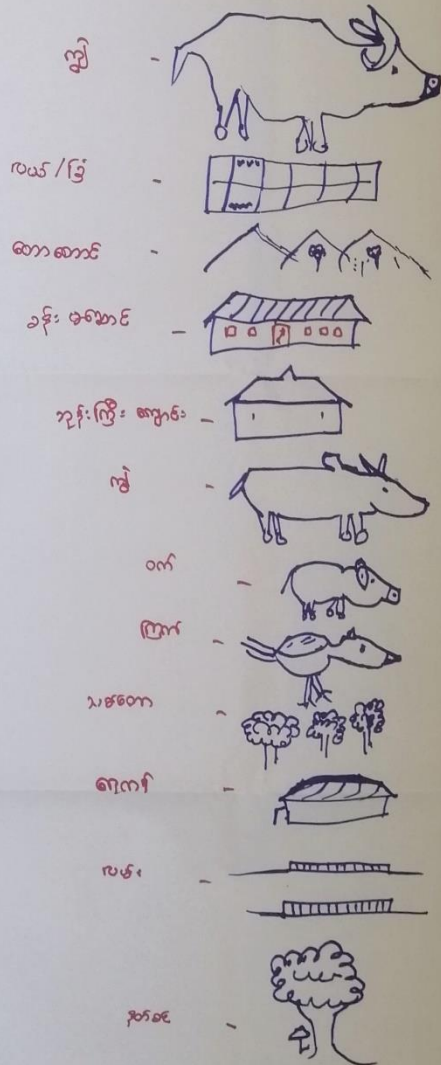 ကျွဲ -
လယ်/ခြံ -
တောတောင် -
ခန်းမဆောင် -
ဘုန်းကြီး ကျောင်း -
ကျွဲ -
ဝက် -
ကြက် -
သစ်တော -
ရေကန် -
လမ်း -